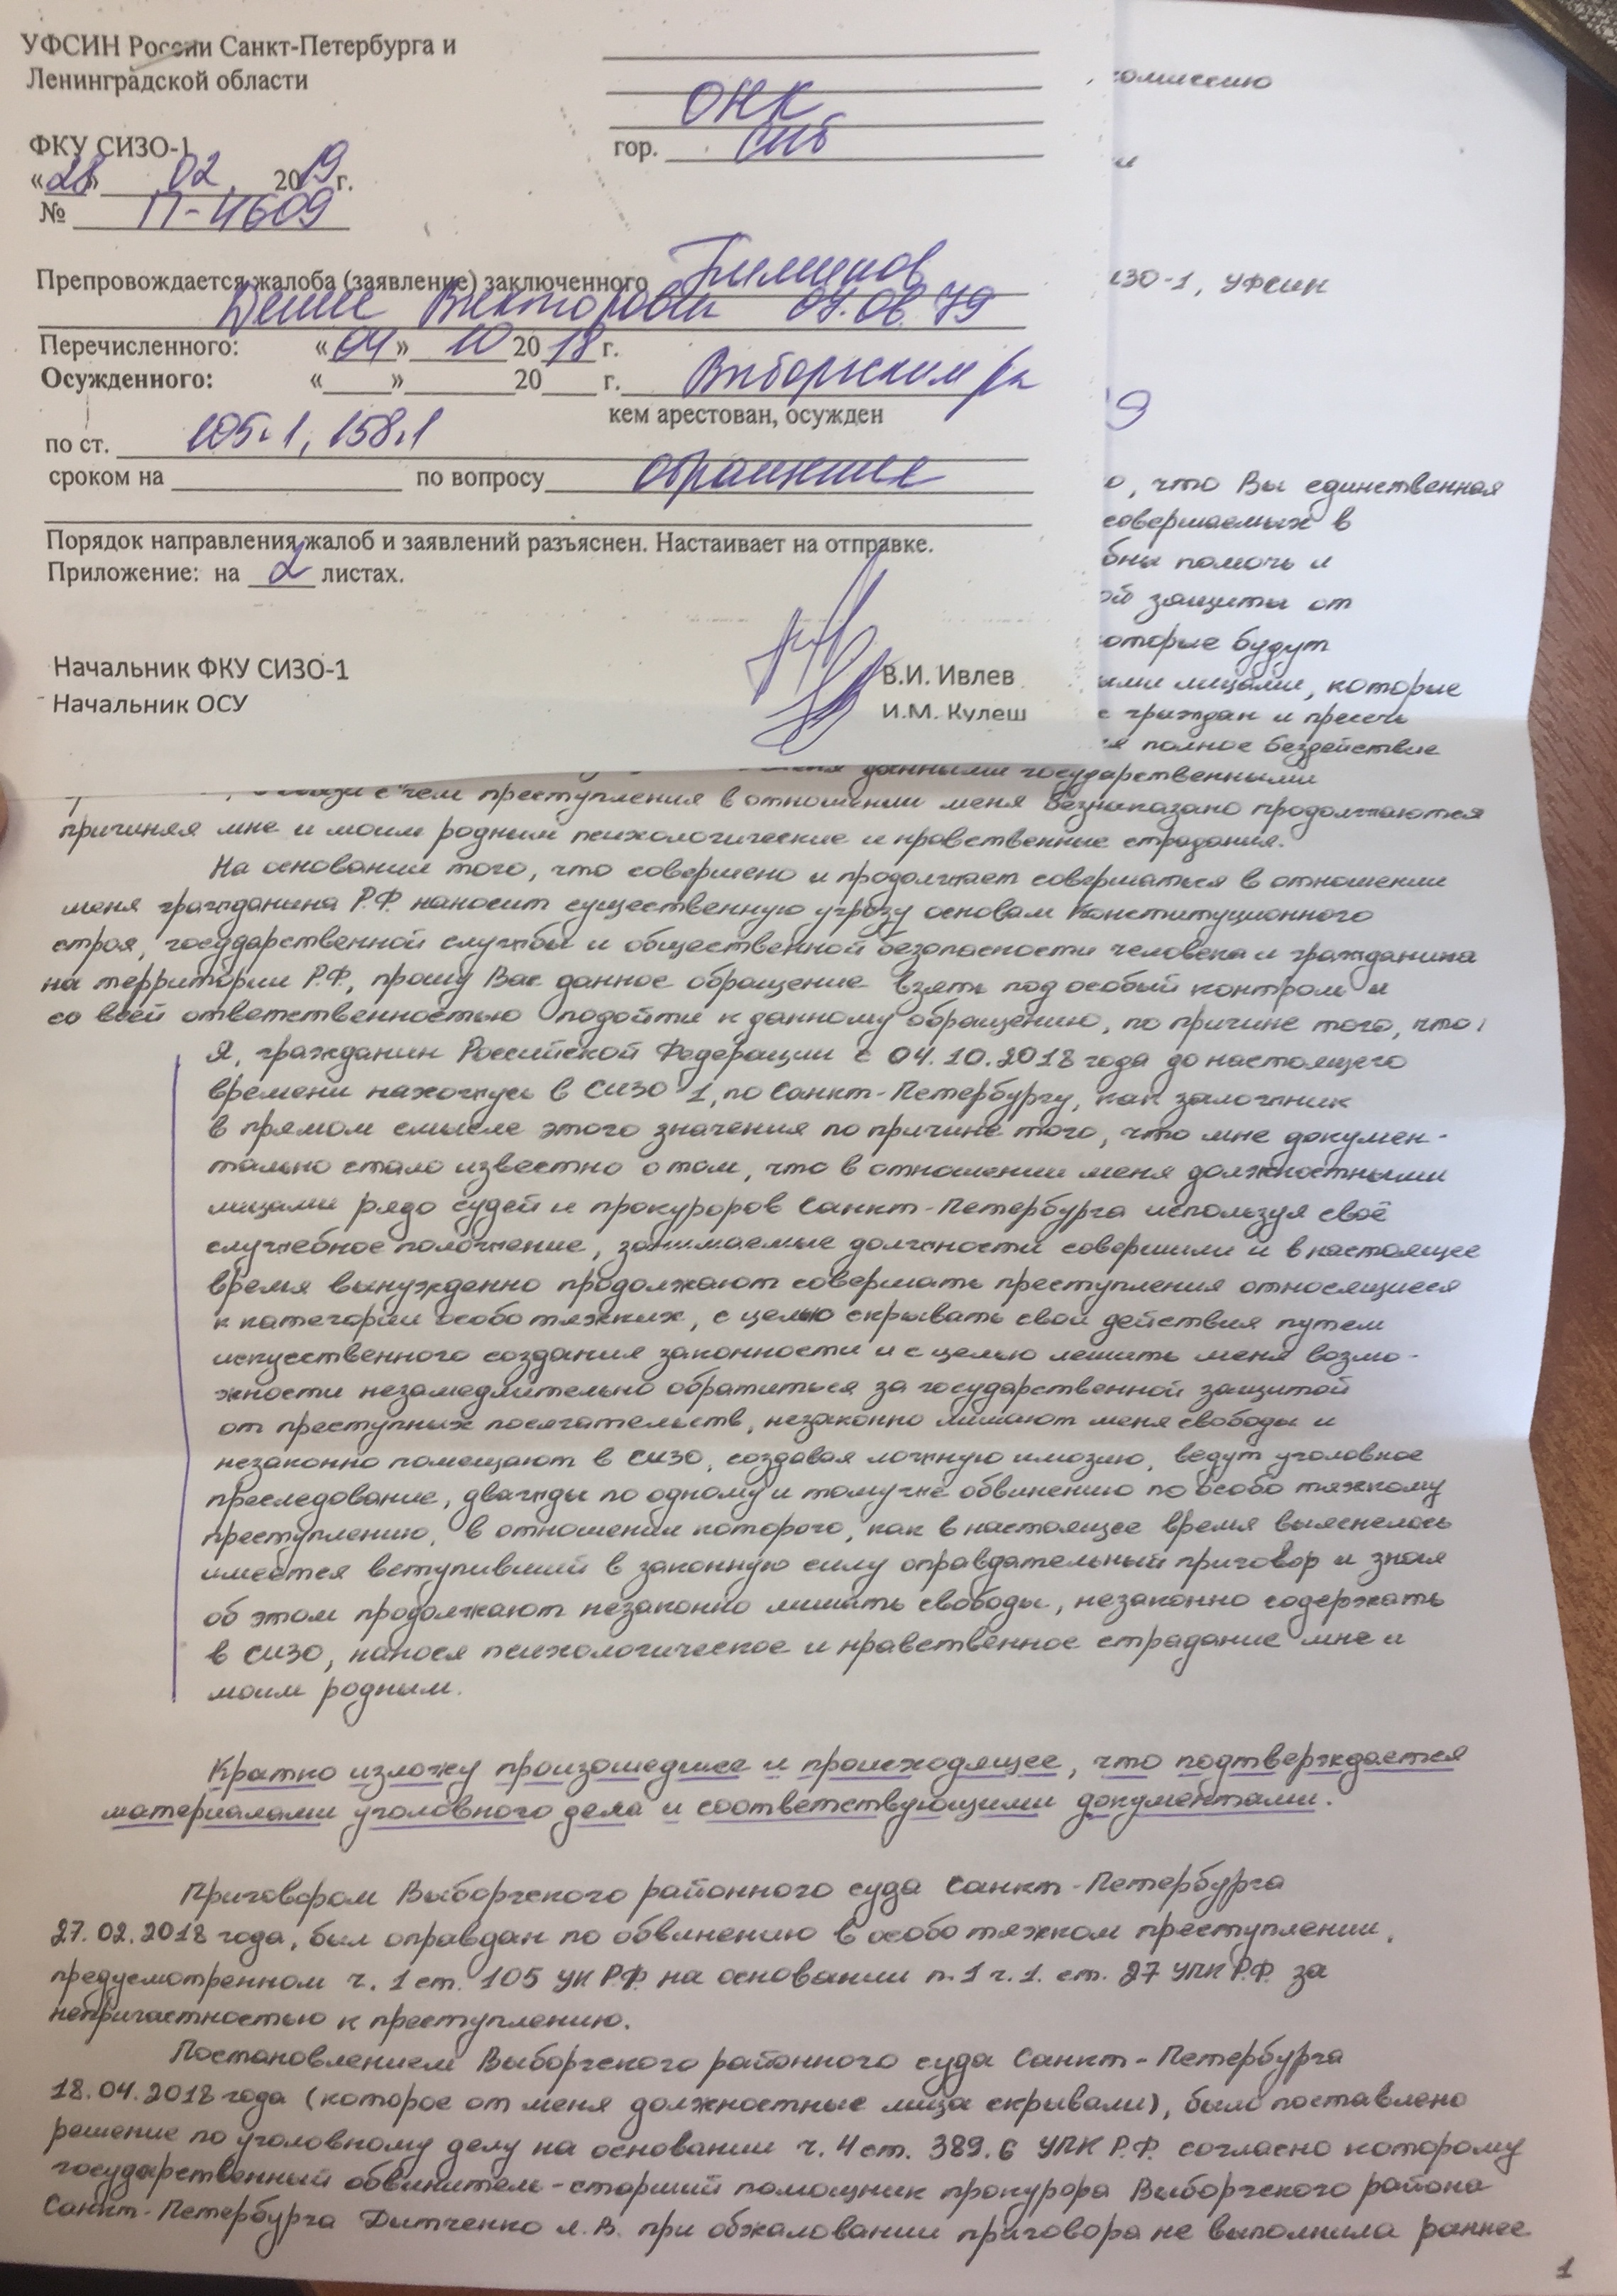 УФСИН России Санкт-Петербурга и
Ленинградской области
ОНК
гор. СПб
ФКУ СИЗО-1
«28» 02 2019 г.
№ П-4609
Препровождается жалоба (заявление) заключенного
Викторовича 04.08.79
Перечисленного: «04» 10 2018 г.
Осужденного: «___» ______ 20___ г. Выборгским р/с
кем арестован, осужден
по ст. 105.1, 158.1
сроком на ______ по вопросу обращение
Порядок направления жалоб и заявлений разъяснен. Настаивает на отправке.
Приложение: на 2 листах.
Начальник ФКУ СИЗО-1 В.И. Ивлев
Начальник ОСУ И.М. Кулеш
омиссию
и
ИЗО-1, УФСИН
9
о, что Вы единственная
совершаемых в
бны помочь и
ой защиты от
оторые будут
ыми лицами, которые
е граждан и пресечь
ся полное бездействие
данными государственными
с чем преступления в отношении меня безнаказано продолжаются
причиняя мне и моим родным психологические и нравственные страдания.
На основании того, что совершено и продолжает совершаться в отношении
меня гражданина Р.Ф. наносит существенную угрозу основам Конституционного
строя, государственной службы и общественной безопасности человека и гражданина
на территории Р.Ф., прошу Вас данное обращение взять под особый контроль и
со всей ответственностью подойти к данному обращению, по причине того, что:
Я, гражданин Российской Федерации с 04.10.2018 года до настоящего
времени нахожусь в СИЗО 1, по Санкт-Петербургу, как заложник
в прямом смысле этого значения по причине того, что мне докумен-
тально стало известно о том, что в отношении меня должностными
лицами рядо судей и прокуроров Санкт-Петербурга используя своё
служебное положение, занимаемые должности совершили и в настоящее
время вынужденно продолжают совершать преступления относящиеся
к категории особо тяжких, с целью скрывать свои действия путем
искусственного создания законности и с целью лешить меня возмо-
жности незамедлительно обратиться за государственной защитой
от преступных посягательств, незаконно лишают меня свободы и
незаконно помещают в СИЗО, создавая ложную илюзию, ведут уголовное
преследование, дважды по одному и тому же обвинению по особо тяжкому
преступлению, в отношении которого, как в настоящее время выяснелось
имеется вступивший в законную силу оправдательный приговор и зная
об этом продолжают незаконно лишать свободы, незаконно содержать
в СИЗО, нанося психологическое и нравственное страдание мне и
моим родным.
Кратко изложу произошедшее и происходящее, что подтверждается
материалами уголовного дела и соответствующими документами.
Приговором Выборгского районного суда Санкт-Петербурга
27.02.2018 года, был оправдан по обвинению в особо тяжком преступлении,
предусмотренном ч. 1 ст. 105 УК Р.Ф. на основании п. 1 ч. 1. ст. 27 УПК Р.Ф. за
непричастностью к преступлению.
Постановлением Выборгского районного суда Санкт-Петербурга
18.04.2018 года (которое от меня должностные лица скрывали), было поставлено
решение по уголовному делу на основании ч. 4 ст. 389.6 УПК Р.Ф. согласно которому
государственный обвинитель - старший помощник прокурора Выборгского района
Санкт-Петербурга Дитченко Л.В. при обжаловании приговора не выполнила раннее
1